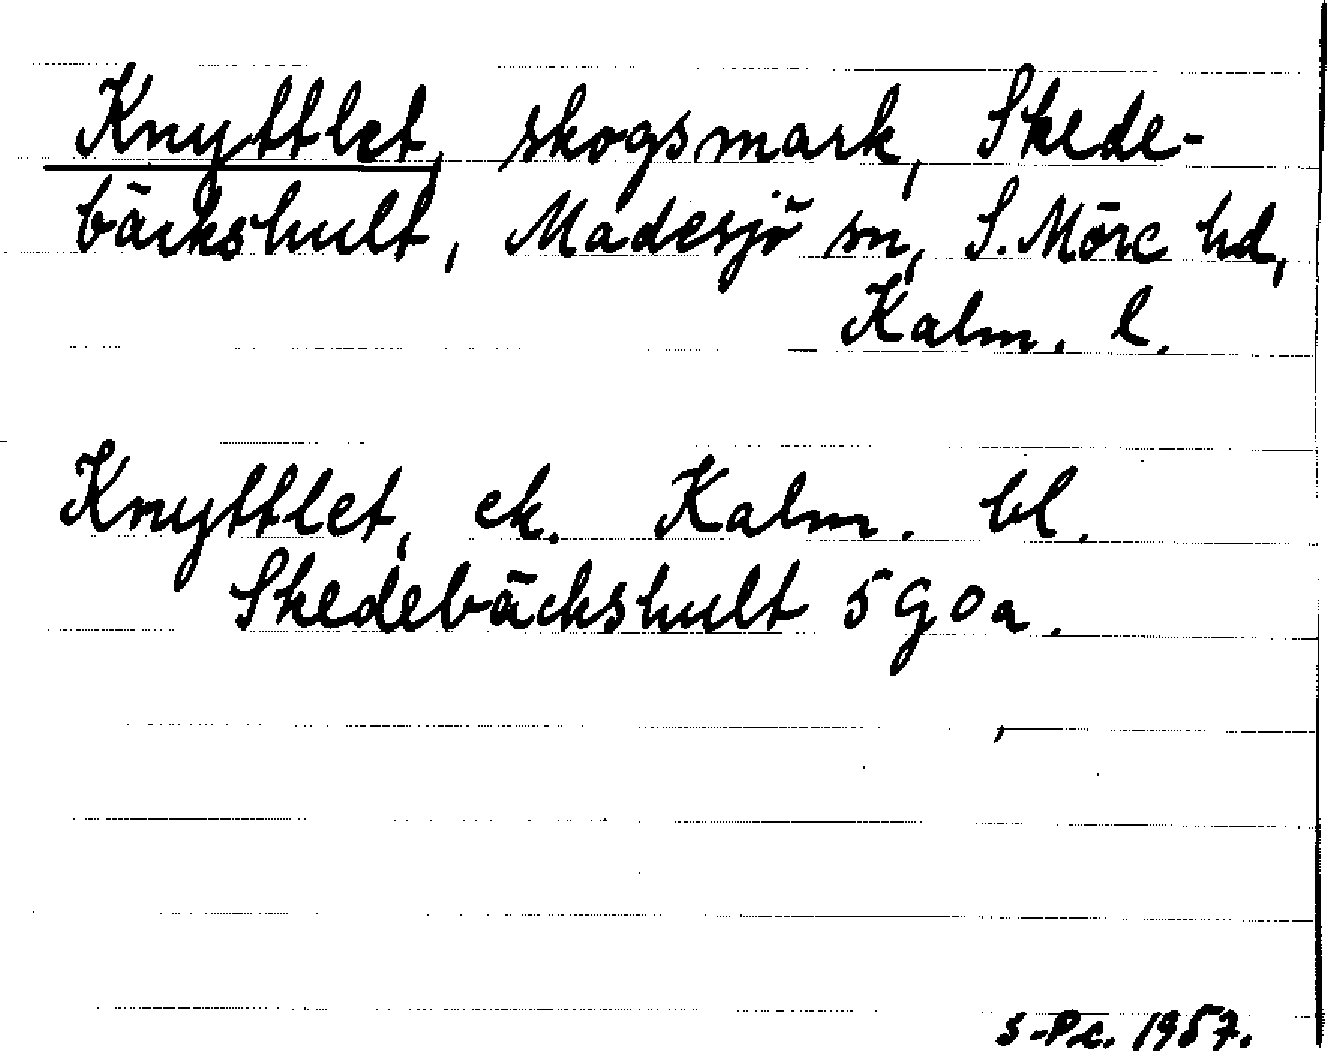 Knyttlet, skogsmark, Skede-
bäckshult, Madesjö sn, S. Möre hd,
Kalm. l.
Knyttlet, ek. Kalm. bl.
Skedebäckshult 5 G o a.
S-P.c. 1957.